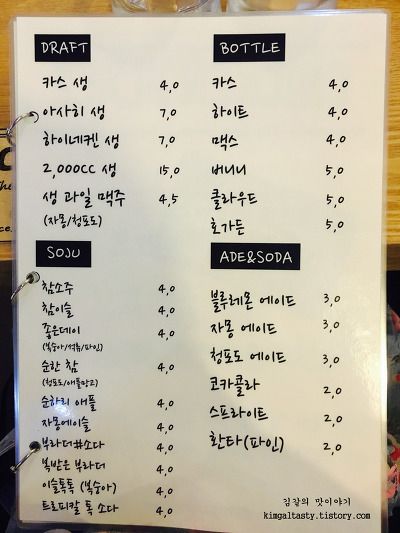 DRAFT
카스 생 4,0
아사히 생 7,0
하이네켄 생 7,0
2,000cc 생 15,0
생 과일 맥주 4,5
(자몽/청포도)
BOTTLE
카스 4,0
하이트 4,0
맥스 4,0
버니니 5,0
클라우드 5,0
호가든 5,0
SOJU
참소주 4,0
참이슬 4,0
좋은데이 4,0
(복숭아/석류/파인)
순한 참 4,0
(청포도/애플망고)
순하리 애플 4,0
자몽에이슬 4,0
부라더#소다 4,0
복받은 부라더 4,0
이슬톡톡 (복숭아) 4,0
트로피칼 톡 소다 4,0
ADE&SODA
블루레몬 에이드 3,0
자몽 에이드 3,0
청포도 에이드 3,0
코카콜라 2,0
스프라이트 2,0
환타(파인) 2,0
김갈의 맛이야기
kimgaltasty.tistory.com